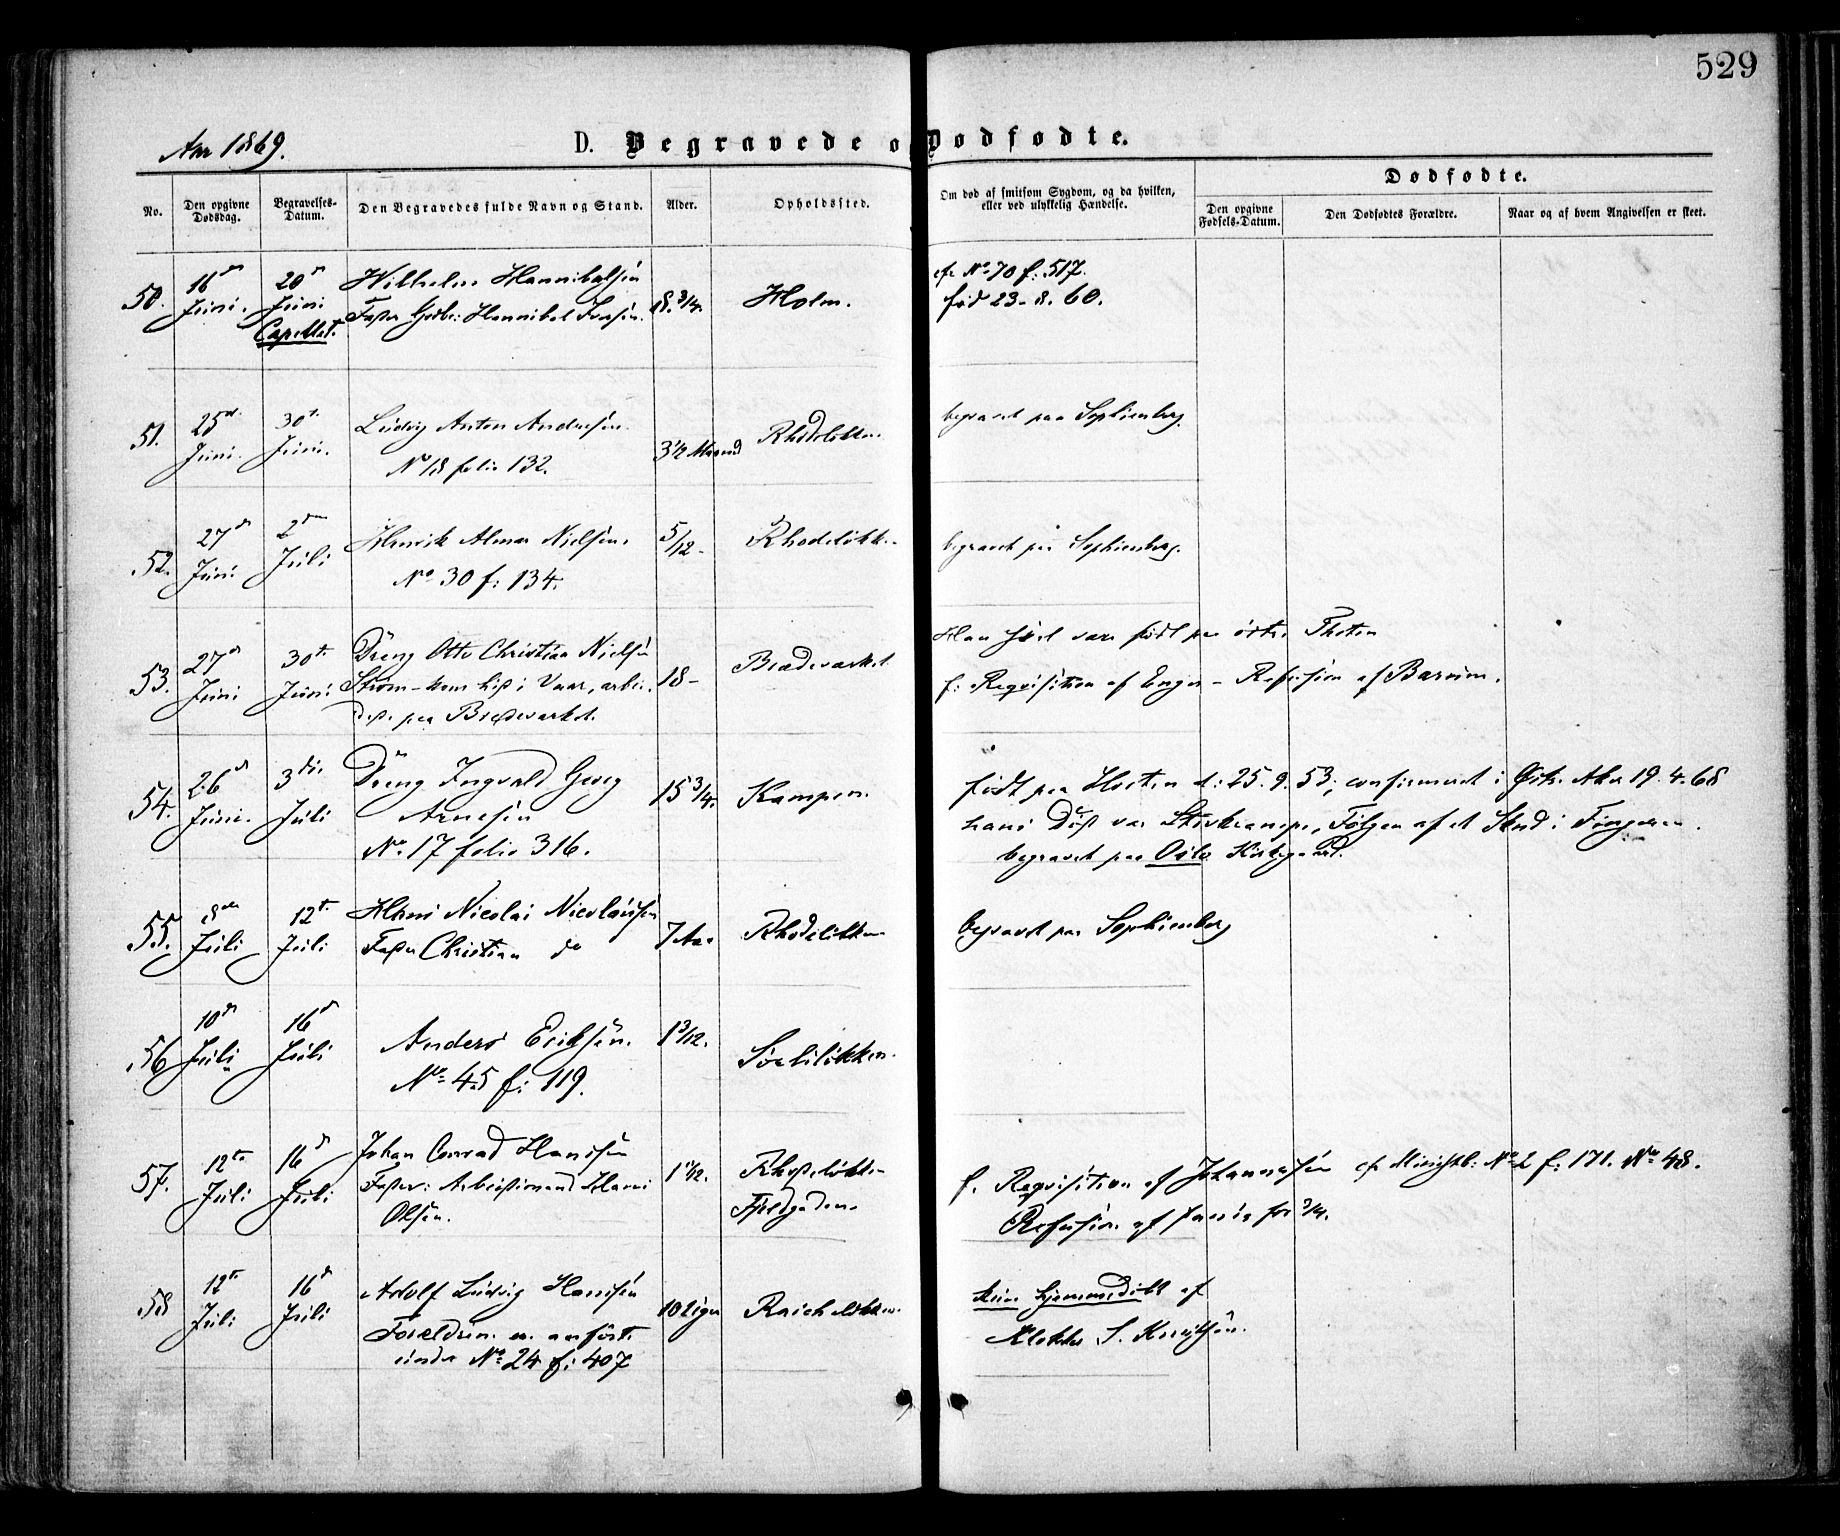 529
Aar 1869.
D. Begravede o Dødfødte.
No.
Den opgivne Dødsdag.
Begravelses-Datum.
Den Begravedes fulde Navn og Stand.
Alder.
Opholdssted.
Om død af smitsom Sygdom, og da hvilken, eller ved ulykkelig Hændelse.
Dødfødte.
Den opgivne Fødsels-Datum.
Den Dødfødtes Forældre.
Naar og af hvem Angivelsen er skeet.
50. 16de Juni. 20de Juni Capellet.
Wilhelm Hannibalsen
Fader Hannibal Iversen.
8 3/4. Holm.
cfr No 70 f: 517.
fød 23-8. 60.
51. 25de Juni. 30te Juni.
Ludvig Anton Andresen.
No 18 folio 132.
3 1/2 Maaned Rhodeløkken
begravet paa Sophienberg.
52. 27de Juni 2den Juli
Henrik Almar Nielsen.
No 30 f: 134.
5/12 - Rhodeløkk.
begravet paa Sophienberg.
53. 27de Juni 30te Juni
Dreng Otto Christian Nielsen
Strøm - kom hid i Vaar, arbei-
dede paa Brødevarket.
18 - Brødevarket
Han skal være født paa østre Thoten
f: Reqvisition af Enger - Refusion af Bærum.
54. 26de Juni. 3die Juli
Dreng Ingvald Georg
Arnesen
No. 17 folio 316.
15 3/4. Kampen.
født paa Horten d: 25. 9. 53, confirmeret i Østr. Aker 19. 4. 68
hans Død var Stivkrampe, Følgen af et Stød i Fingeren.
begravet paa Oslo Kirkegaard.
55. 8de Juli 12te Juli
Hans Nicolai Nicolaisen
Fader Christian do
7 Aar Rhodeløkken
begravet paa Sophienberg
56 10de Juli 16de Juli
Anders Eriksen.
No 45 f: 119.
1 3/12. Sorliløkken.
57. 12te Juli 16de Juli
Johan Conrad Hansen
Fader: Arbeidsmand Hans
Olsen.
Rhodeløkk-
f. Reqvisition af Johannesen cfr Minist.b: No 2 f: 171. No 48.
Refusion af
58 12te Juli 16de Juli
Adolf Ludvig Hansen
Forældren. er anført
under No 24 f: 407
10 Uger Raicheløkken
kun hjemmedøbt af
Klokker S. Knudsen.